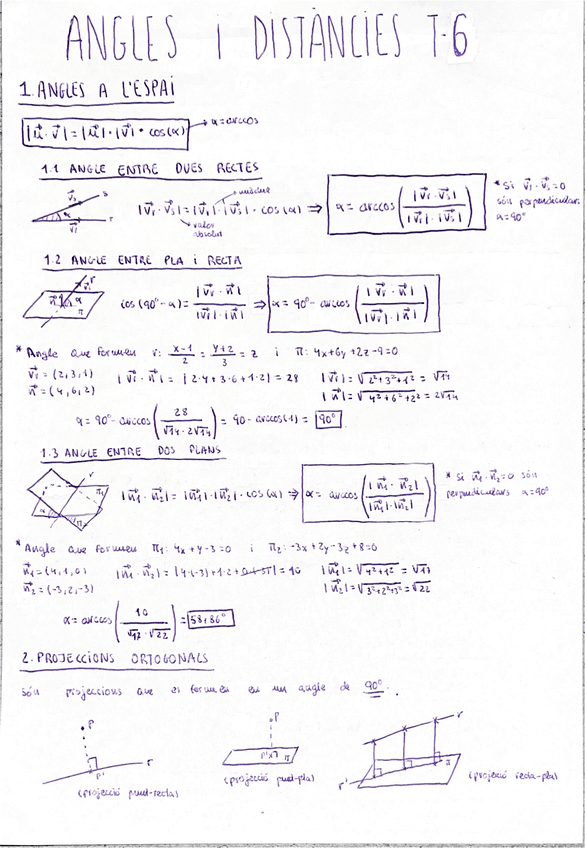 ANGLES i DISTÀNCIES T-6
1. ANGLES A L'ESPAI
|u⃗ · v⃗| = |u⃗| · |v⃗| · cos(α) → α = arccos
1.1 ANGLE ENTRE DUES RECTES
v⃗s s
α v⃗r r
|v⃗r · v⃗s| = |v⃗r| · |v⃗s| · cos(α) ⇒ α = arccos( |v⃗r · v⃗s| / |v⃗r| · |v⃗s| )
mòdul
valor absolut
* Si v⃗r · v⃗s = 0
són perpendiculars
α = 90°
1.2 ANGLE ENTRE PLA i RECTA
n⃗ v⃗r r α π
cos(90° - α) = |v⃗r · n⃗| / |v⃗r| · |n⃗| ⇒ α = 90° - arccos( |v⃗r · n⃗| / |v⃗r| · |n⃗| )
* Angle que formen r: x-1/2 = y+2/3 = z i π: 4x+6y+2z-9=0
v⃗r = (2,3,1) |v⃗r · n⃗| = |2·4+3·6+1·2| = 28 |v⃗r| = √2²+3²+1² = √14
n⃗ = (4,6,2) |n⃗| = √4²+6²+2² = 2√14
α = 90° - arccos( 28 / √14 · 2√14 ) = 90 - arccos(1) = 90°
1.3 ANGLE ENTRE DOS PLANS
r π1 α π2
|n⃗1 · n⃗2| = |n⃗1| · |n⃗2| · cos(α) ⇒ α = arccos( |n⃗1 · n⃗2| / |n⃗1| · |n⃗2| )
* Si n⃗1 · n⃗2 = 0 són
perpendiculars α = 90°
* Angle que formen π1: 4x+y-3=0 i π2: -3x+2y-3z+8=0
n⃗1 = (4,1,0) |n⃗1 · n⃗2| = |4·(-3)+1·2+0·(-3)| = 10 |n⃗1| = √4²+1² = √17
n⃗2 = (-3,2,-3) |n⃗2| = √3²+2²+3² = √22
α = arccos( 10 / √17 · √22 ) = 58'86°
2. PROJECCIONS ORTOGONALS
Són projeccions que es formen en un angle de 90°.
P P r
P' r P' π r' π
(projecció punt-recta) (projecció punt-pla) (projecció recta-pla)